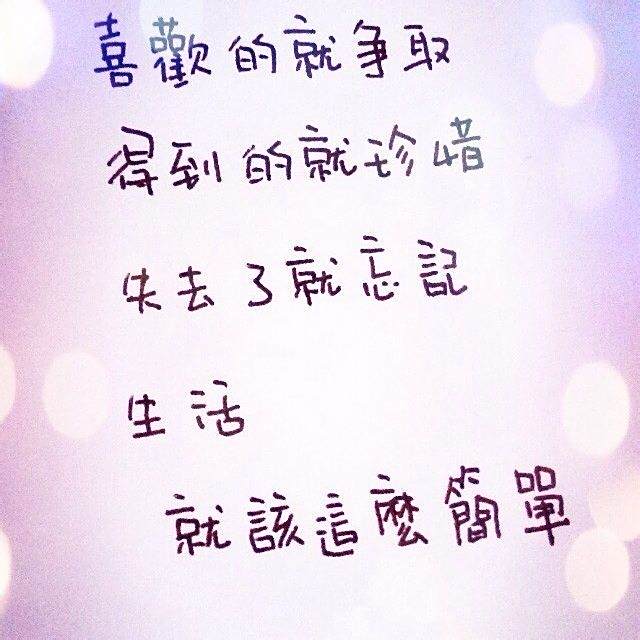 喜歡的就爭取
得到的就珍惜
失去了就忘記
生活
就該這麼簡單